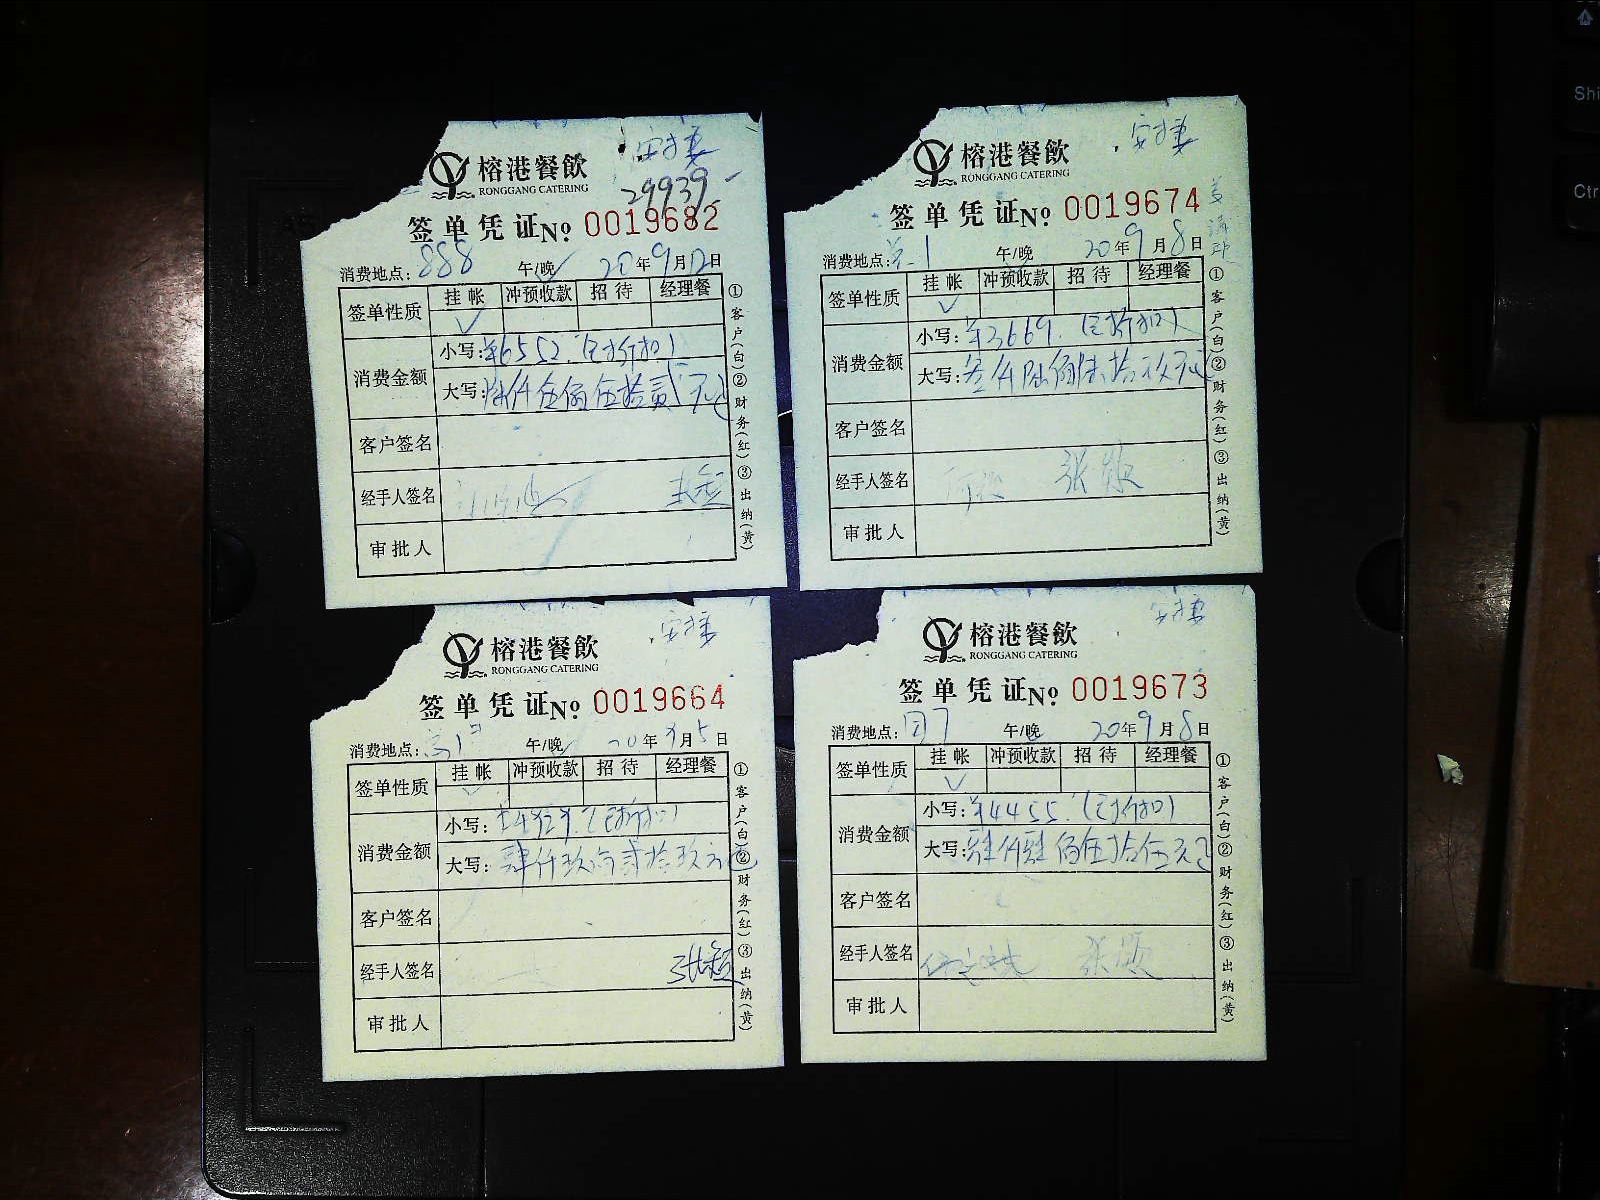 榕港餐飲
RONGGANG CATERING
29939
签单凭证 No 0019682
消费地点: 888 午/晚 20年9月12日
签单性质 挂帐 冲预收款 招待 经理餐
消费金额 小写: ¥6552. (已折扣)
大写: 陆仟伍佰伍拾贰元正
客户签名
经手人签名
审批人
①客户(白)②财务(红)③出纳(黄)
榕港餐飲
RONGGANG CATERING
签单凭证 No 0019674
消费地点: 午/晚 20年9月8日
签单性质 挂帐 冲预收款 招待 经理餐
消费金额 小写: ¥3669. (已折扣)
大写: 叁仟陆佰陆拾玖元正
客户签名
经手人签名 张
审批人
①客户(白)②财务(红)③出纳(黄)
榕港餐飲
RONGGANG CATERING
签单凭证 No 0019664
消费地点: 午/晚 20年9月5日
签单性质 挂帐 冲预收款 招待 经理餐
消费金额 小写: (已折扣)
大写: 肆仟玖佰贰拾玖元正
客户签名
经手人签名 张超
审批人
①客户(白)②财务(红)③出纳(黄)
榕港餐飲
RONGGANG CATERING
签单凭证 No 0019673
消费地点: 午/晚 20年9月8日
签单性质 挂帐 冲预收款 招待 经理餐
消费金额 小写: ¥4455. (已折扣)
大写: 肆仟肆佰伍拾伍元正
客户签名
经手人签名 张
审批人
①客户(白)②财务(红)③出纳(黄)
Shi
Ctr